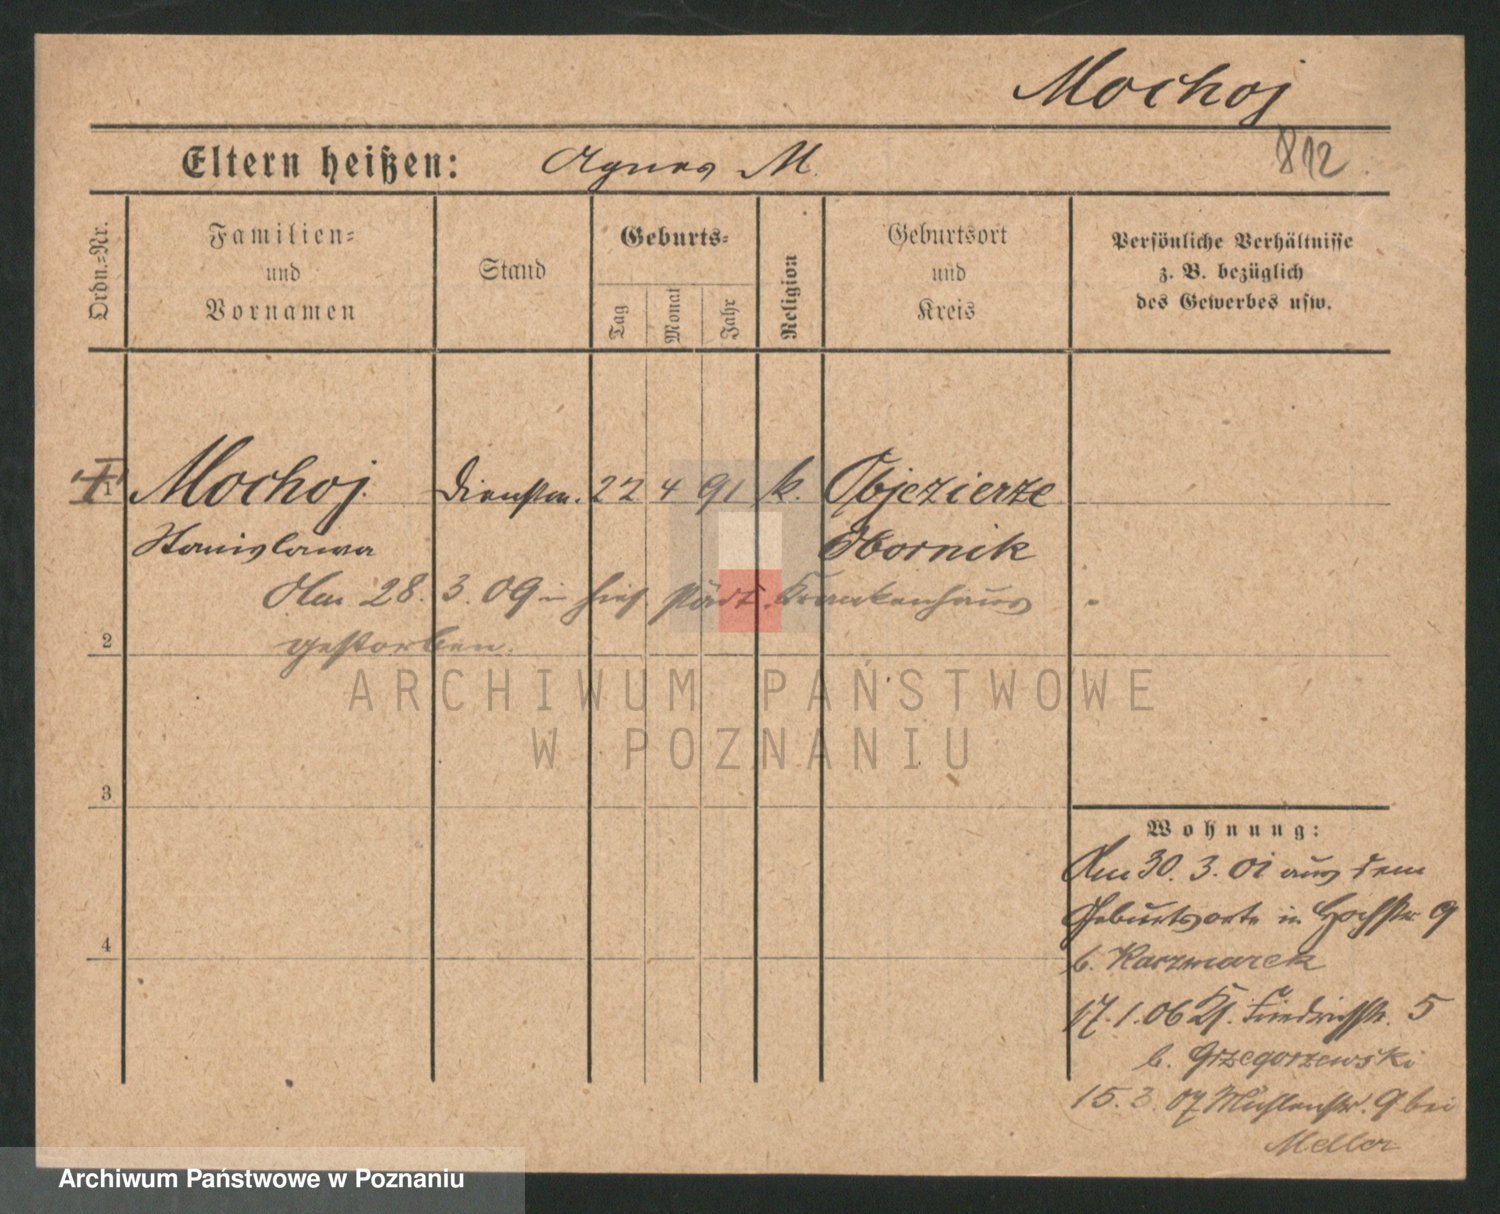 Mochoj
812
Eltern heißen: Agnes M.
Ordn.-Nr.
Familien-
und
Vornamen
Stand
Geburts-
Tag
Monat
Jahr
Religion
Geburtsort
und
Kreis
Persönliche Verhältnisse
z. B. bezüglich
des Gewerbes usw.
1 Mochoj. Dienstm. 22 4 91 k. Objezierze
Stanislawa Obornik
Am 28. 3. 09 in hies. städt. Krankenhaus
gestorben.
2
3
4
Wohnung:
Am 30. 3. 01 aus dem
Geburtsorte in Hochstr 9
b. Kaczmarek
17. 1. 06 Kl. Friedrichstr. 5
b. Grzegorzewski
15. 3. 07 Mühlenstr. 9 bei
Meller
ARCHIWUM PAŃSTWOWE
W POZNANIU
Archiwum Państwowe w Poznaniu